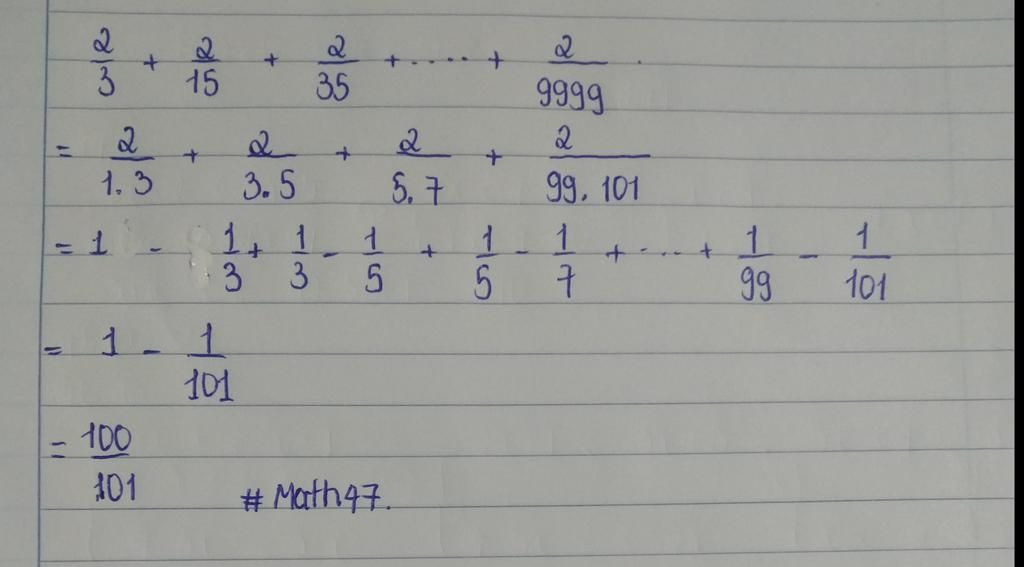 2/3 + 2/15 + 2/35 + ..... + 2/9999
= 2/1.3 + 2/3.5 + 2/5.7 + 2/99.101
= 1 - 1/3 + 1/3 - 1/5 + 1/5 - 1/7 + ... + 1/99 - 1/101
= 1 - 1/101
= 100/101
#Math47.